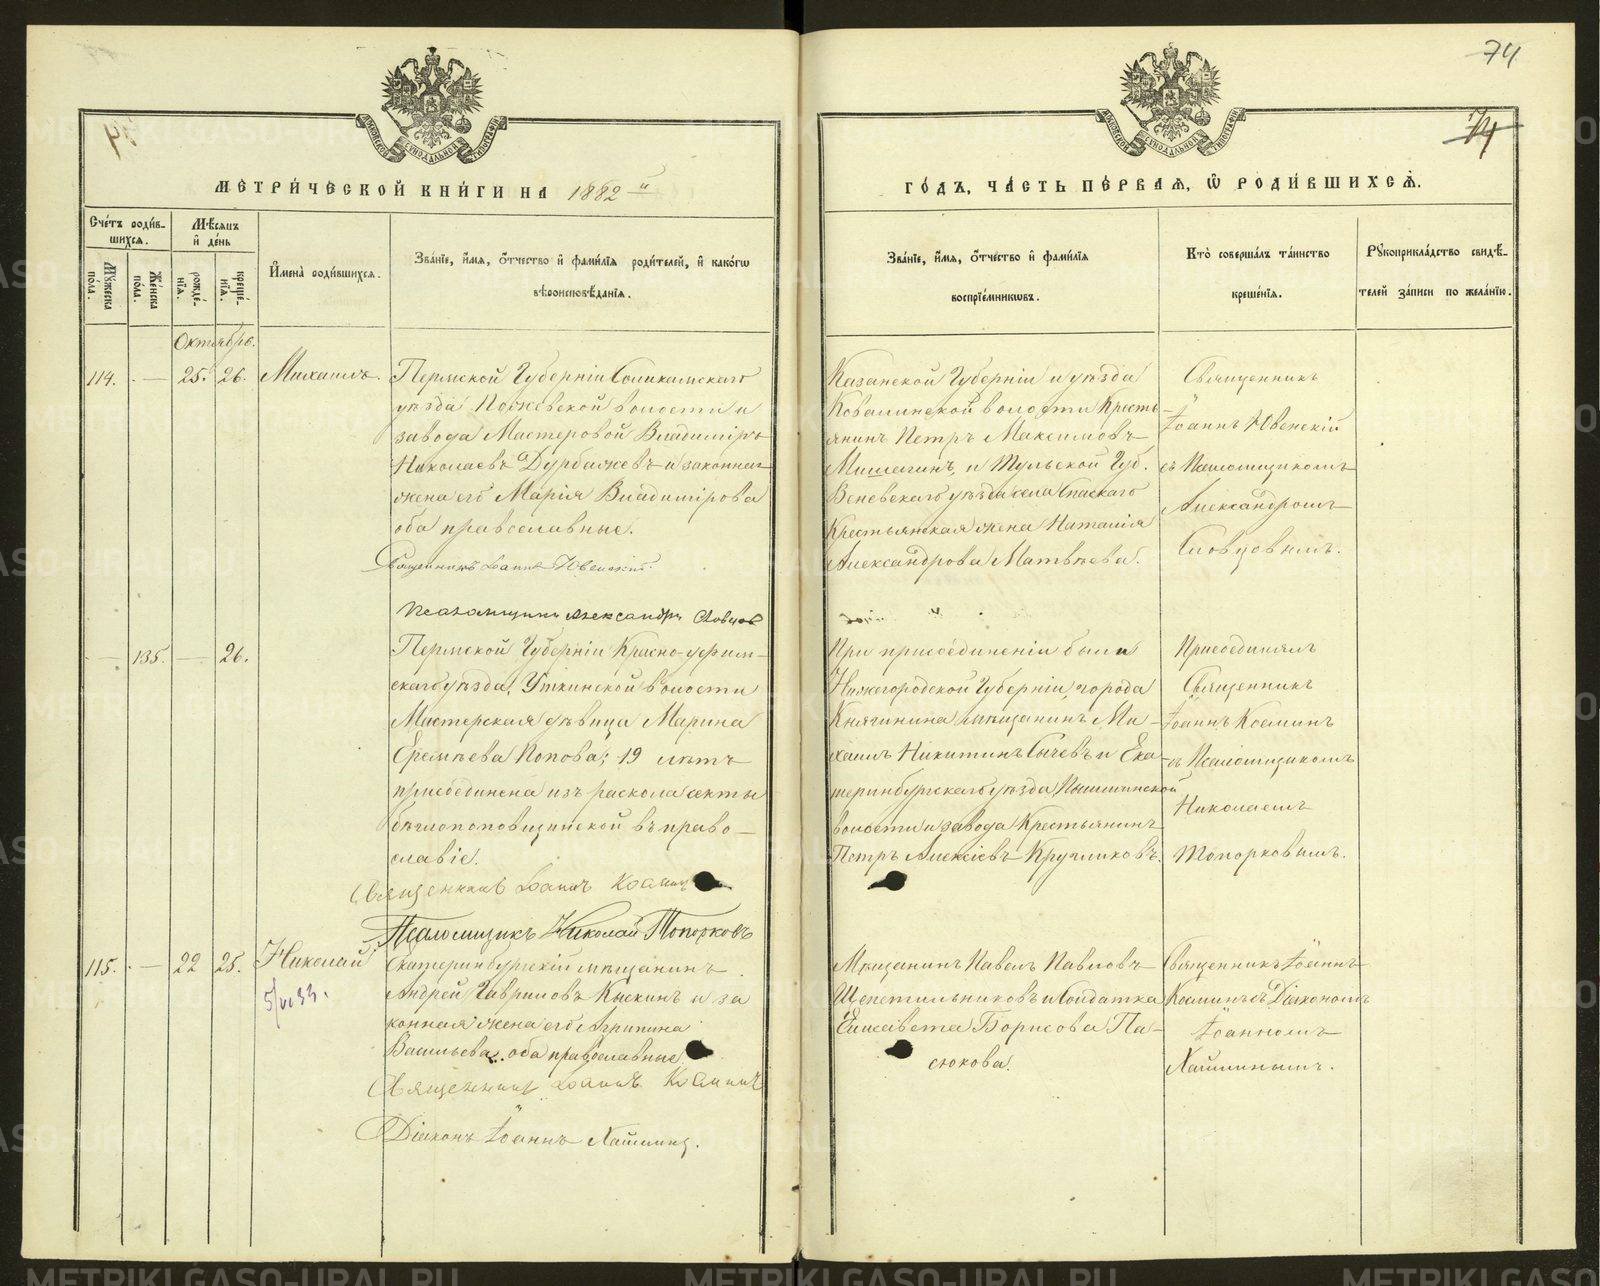 74
74
МЕТРИ́ЧЕСКОЙ КНИ́ГИ НА 1882 й
ГО́ДЪ, ЧА́СТЬ ПЕ́РВАЯ, Ѽ РОДИ́ВШИХСЯ.
Сче́тъ роди́в-
шихся.
Му́жеска по́ла.
Же́нска по́ла.
Мѣ́сяцъ
и҆ де́нь
рожде́-
нїя.
креще́-
нїя.
И҆мена̀ роди́вшихся.
Зва́нїе, и҆́мя, ѻ҆́тчество и҆ фами́лїя роди́телей, и҆ како́гѡ
вѣроисповѣ́данїя.
Зва́нїе, и҆́мя, ѻ҆́тчество и҆ фами́лїя
воспрїе́мникѡвъ.
Кто̀ соверша́лъ та́инство
креще́нїя.
Рꙋкоприкла́дство свидѣ́-
телей за́писи по жела́нїю.
Октябрь.
114.
—
25.
26.
Михаилъ.
Пермской Губерніи Соликамскаго
уѣзда Пожевской волости и
завода Мастеровой Владиміръ
Николаевъ Дурбажевъ и законная
жена его Марія Владимірова
оба православные.
Священникъ Іоаннъ Ювенскій.
Псаломщикъ Александръ Словцовъ
Казанской Губерніи и уѣзда
Ковалинской волости Кресть-
янинъ Петръ Максимовъ
Мишагинъ, и Тульской Губ.
Веневскаго уѣзда села Спаскаго
Крестьянская жена Наталія
Александрова Матвѣева.
Священникъ
Іоаннъ Ювенскій
съ Псаломщикомъ
Александромъ
Словцовымъ.
—
135.
—
26.
Пермской Губерніи Красно-уфим-
скаго уѣзда, Уткинской волости
Мастерская дѣвица Марина
Еремѣева Попова; 19 лѣтъ
присоединена изъ раскола секты
бѣглопоповщинской въ право-
славіе.
Священникъ Іоаннъ Косминъ
Псаломщикъ Николай Топорковъ
При присоединеніи были
Нижегородской Губерніи, города
Княгинина мѣщанинъ Ми-
хаилъ Никитинъ Сычевъ и Ека-
теринбургскаго уѣзда Пышминской
волости и завода Крестьянинъ
Петръ Алексіевъ Кругликовъ.
Присоединялъ
Священникъ
Іоаннъ Косминъ
съ Псаломщикомъ
Николаемъ
Топорковымъ.
115.
—
22
25.
Николай
5/VI 33.
Екатеринбургскій мѣщанинъ
Андрей Гавриловъ Кыскинъ и за
конная жена его Агрипина
Васильева, оба православные.
Священникъ Іоаннъ Косминъ
Діаконъ Іоаннъ Хашминъ.
Мѣщанинъ Павелъ Павловъ
Щепетильниковъ и Солдатка
Елисавета Борисова Па-
сюкова.
Священникъ Іоаннъ
Косминъ съ Діакономъ
Іоанномъ
Хашминымъ.
METRIKI.GASO-URAL.RU